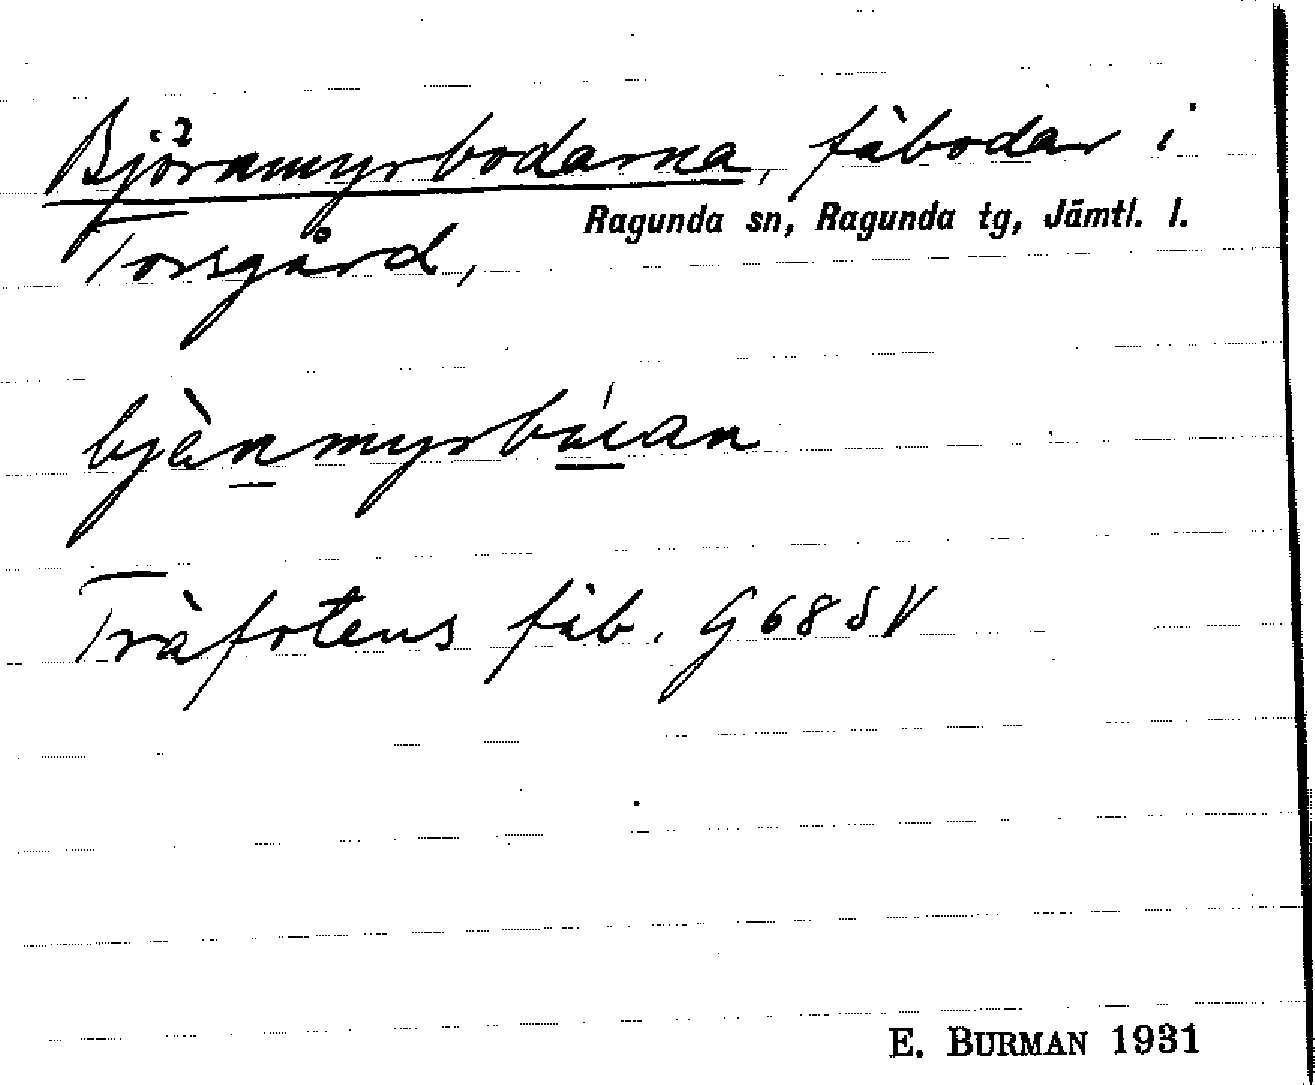 Björnmyrbodarna, fäbodar i
Ragunda sn, Ragunda tg, Jämtl. l.
Torsgård,
bjànmyrbúan
Träfotens fäb. G68SV
E. BURMAN 1931